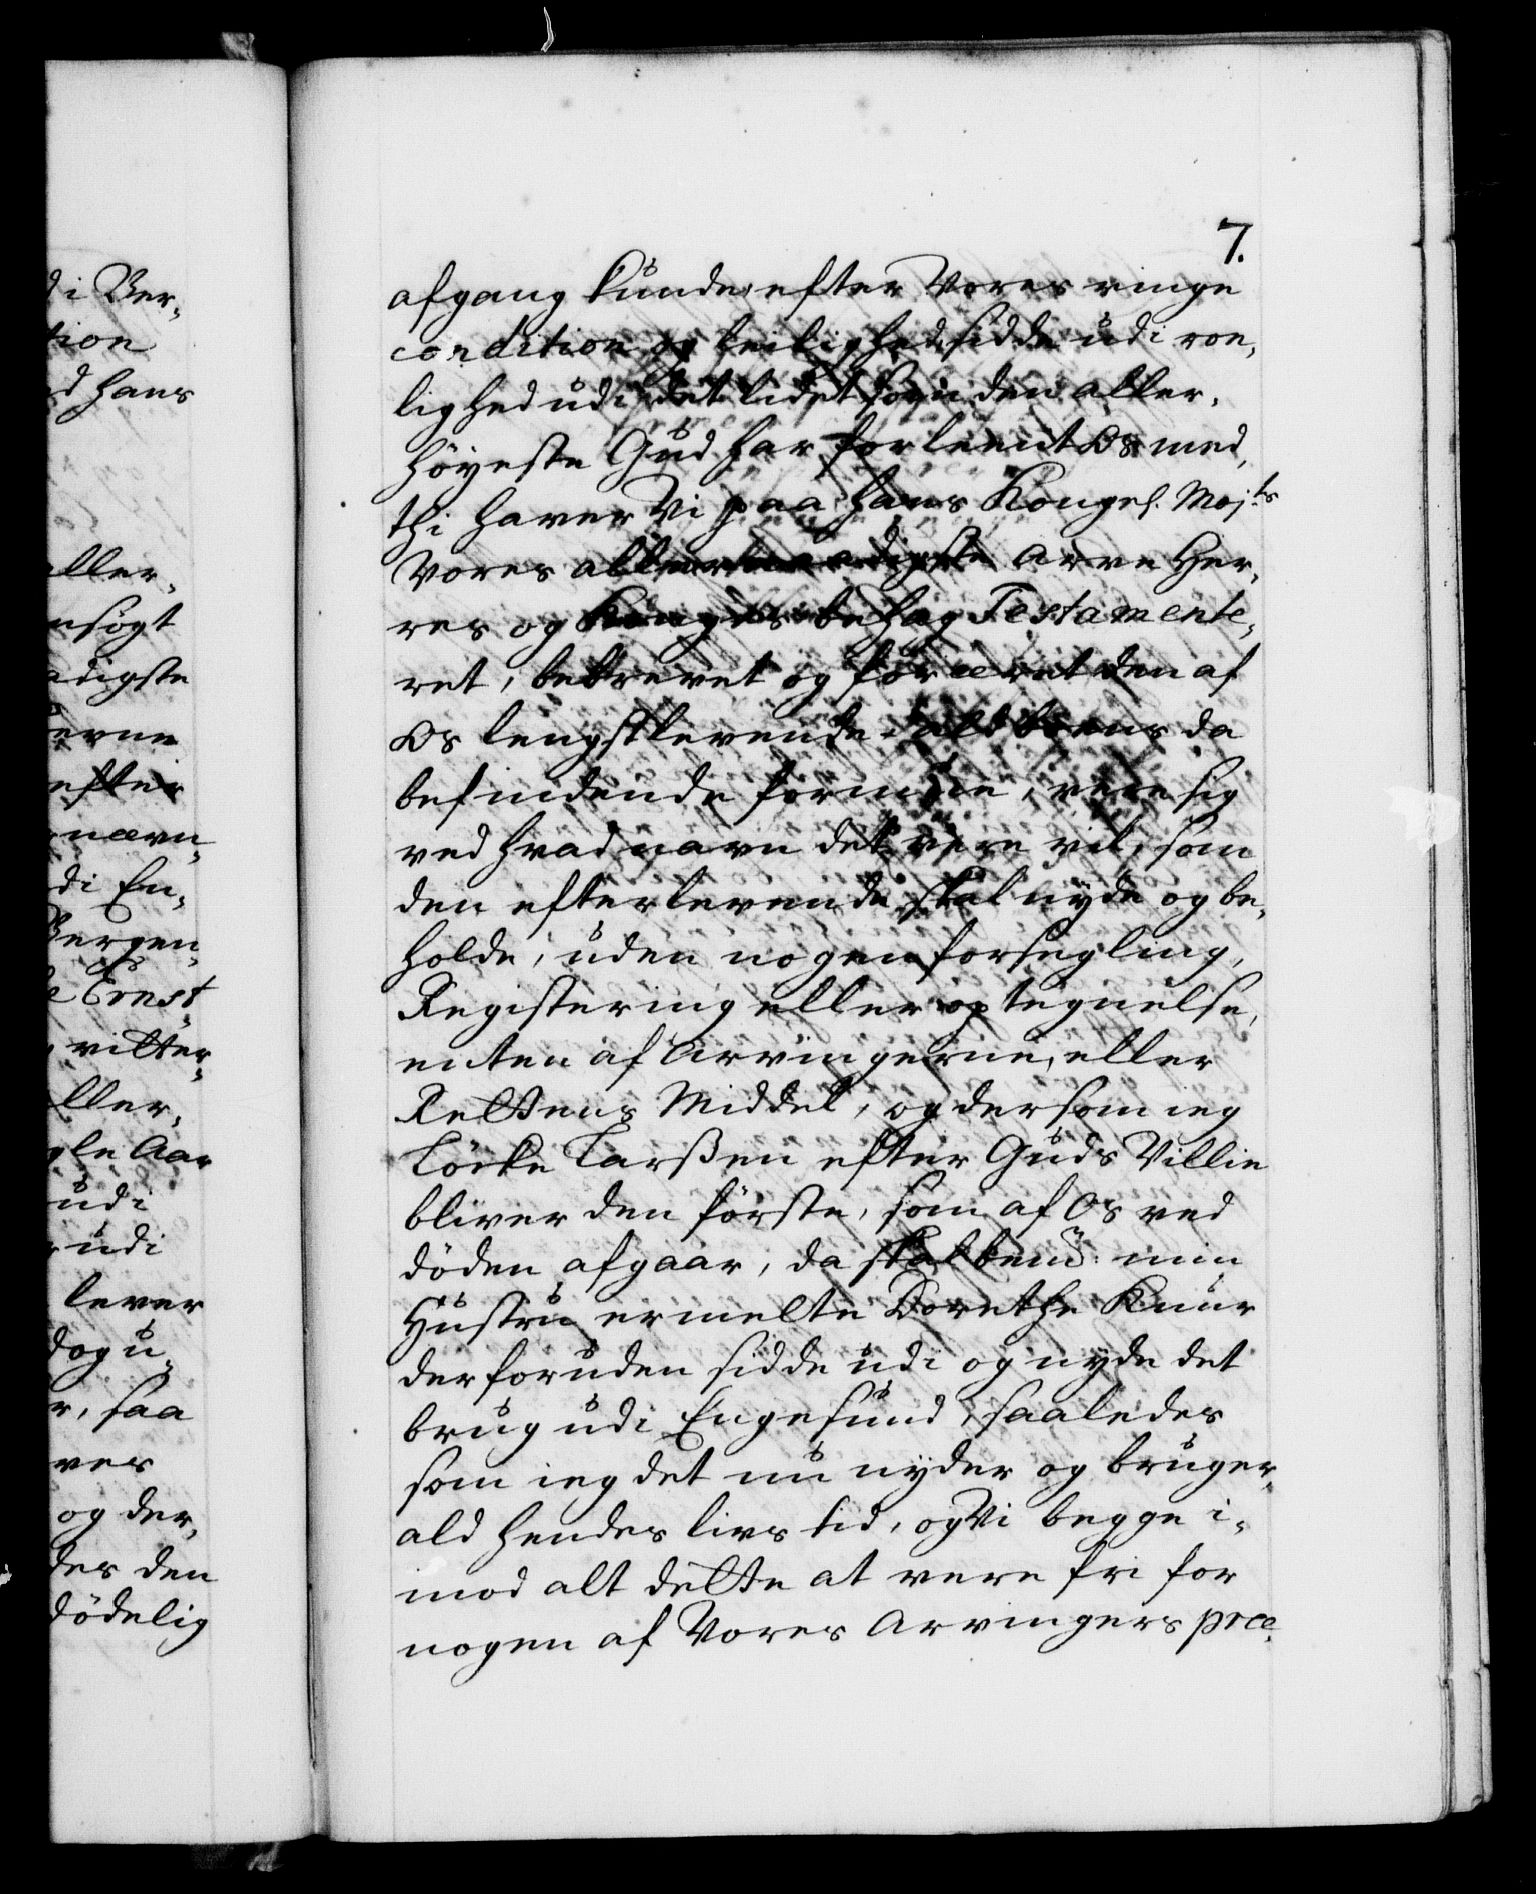 7.
afgang kunde efter Vores ringe
condition og leilighed sidde udi roe,
lighed udi det lidet som den aller,
höyeste Gud har forleent Os med,
thi haver Vi paa Hans Kongel. Maj:ts
Vores allernaadigste Arve Her,
res og Konges behag Testamente,
ret, bebrevet og foræret den af
Os lengstlevende ald voris da
befindende formue, være sig
ved hvad navn det være vil, som
den efterlevende skal nyde og be,
holde, uden nogen forsegling,
Registering eller optegnelse,
enten af Arvingerne, eller
Rettens Middel, og dersom ieg
Töcke Larßen efter Guds Villie
bliver den förste, som af Os ved
döden afgaar, da skal bem:te min
Hustru ermelte Dorethe Knur
derforuden sidde udi og nyde det
brug udi Engesund, saaledes
som ieg det nu nyder og bruger,
ald hendes livs tid, og Vi begge i,
mod alt dette at være fri for
nogen af Vores Arvingers præ,
di Ber,
tion
d hans
aller,
nsögt
adigste
erne
efter
nævn,
di En,
Bergen,
Ernst
vitter,
ller,
gle Aar
udi
udi
lever
dog u,
r, saa
ves
og der,
des den
dödelig